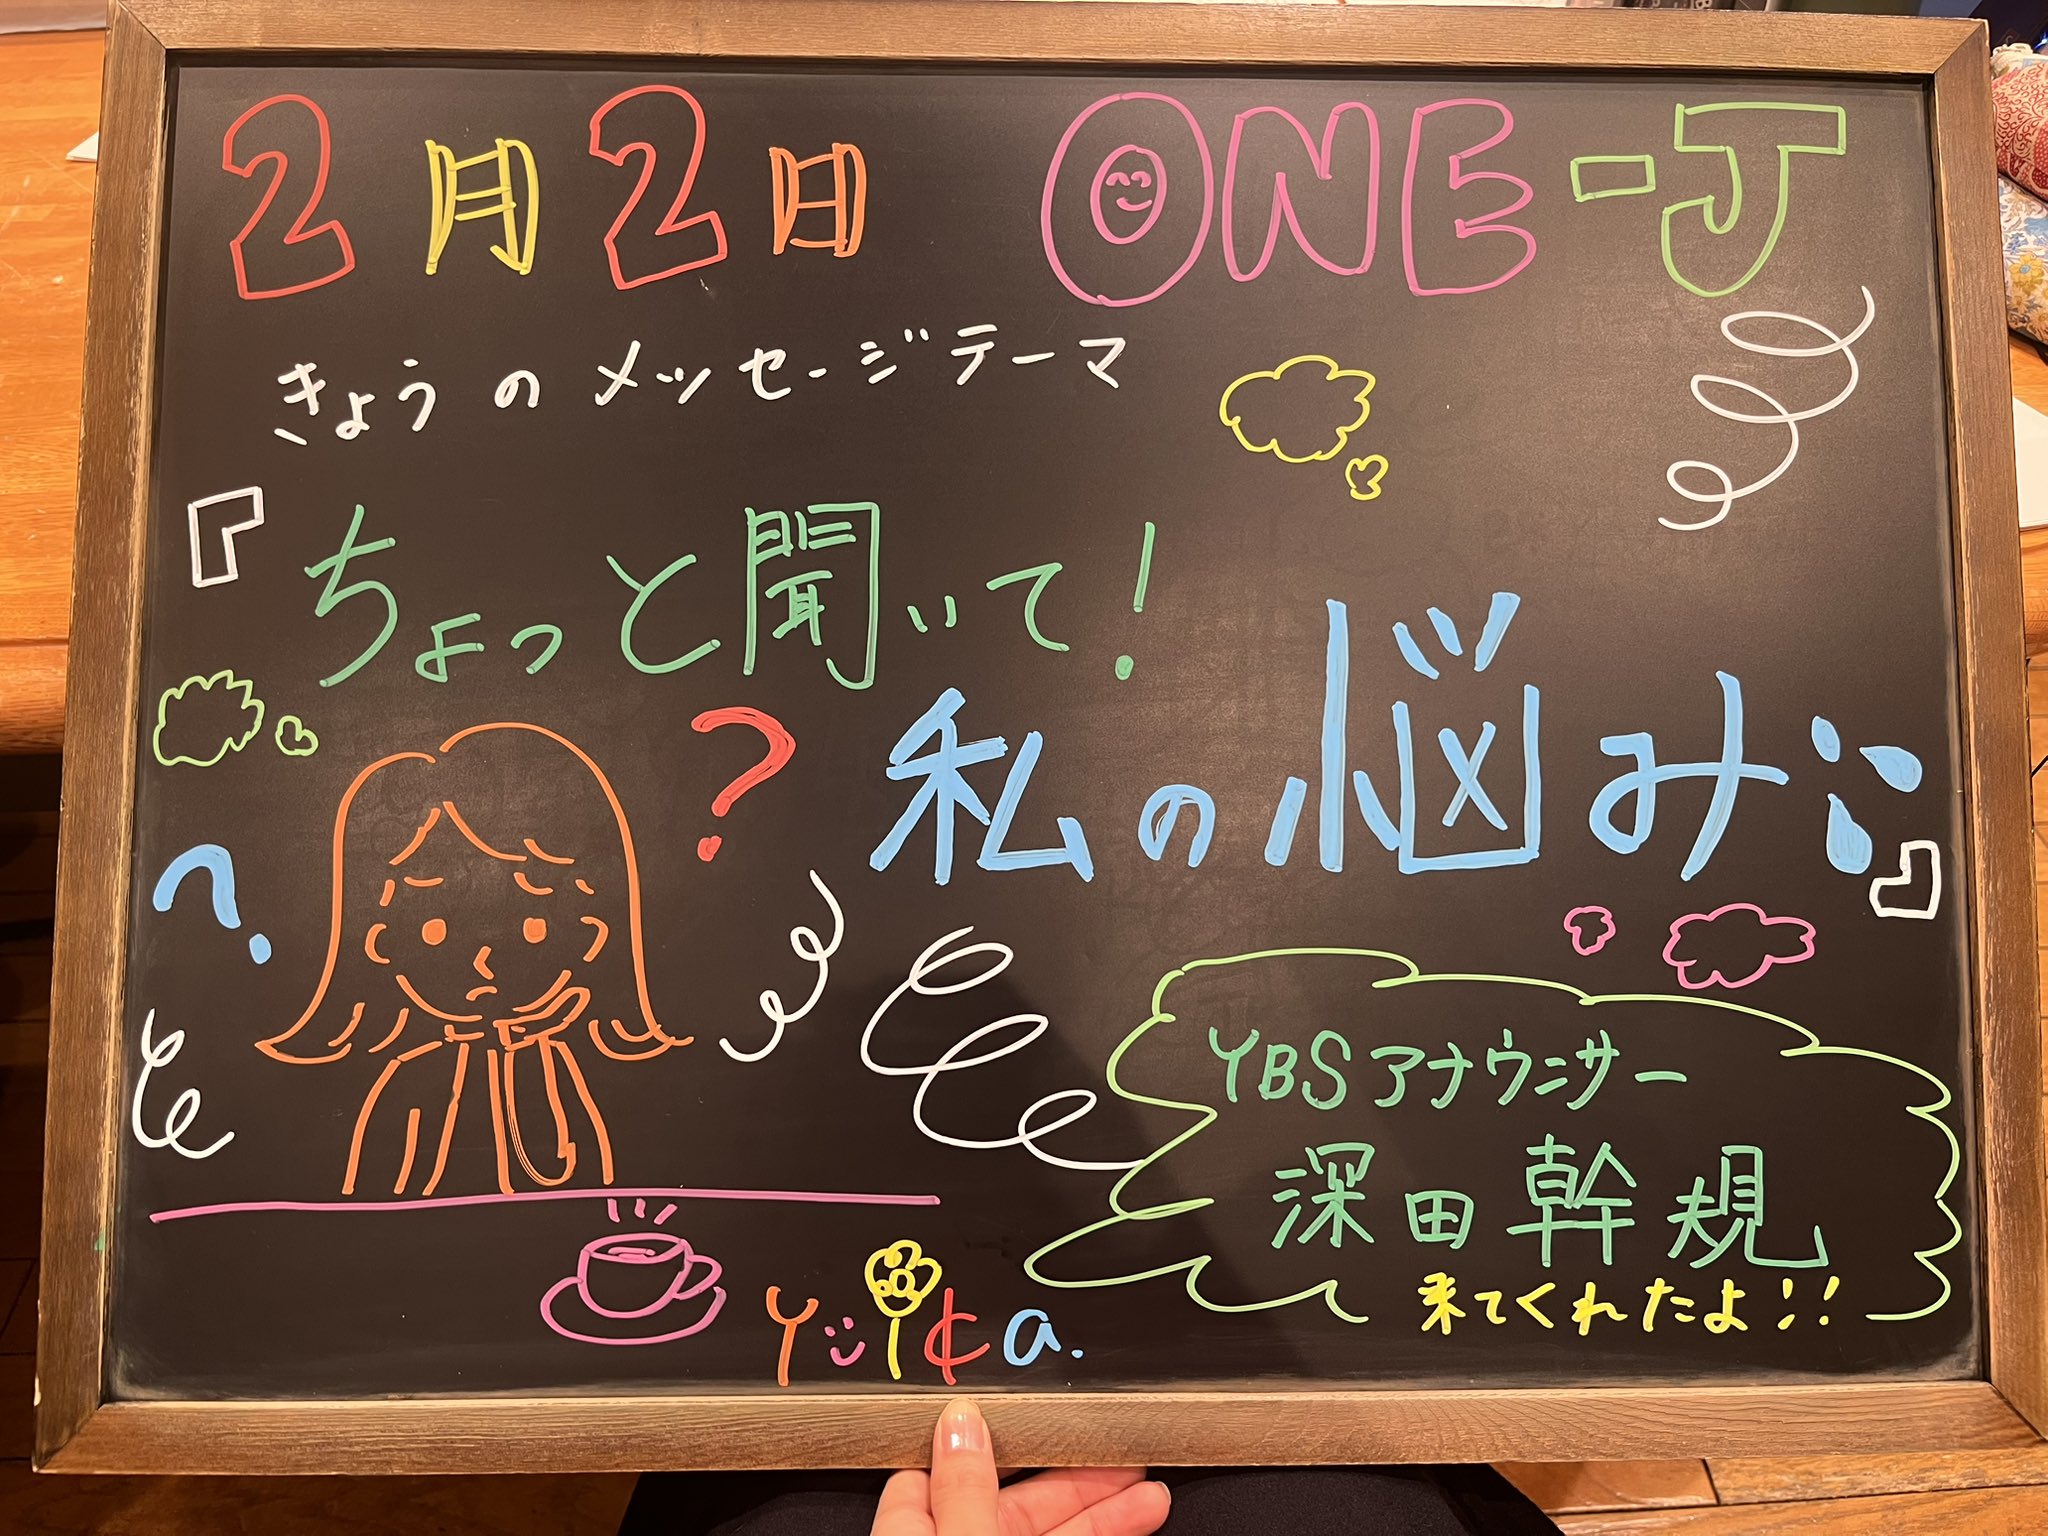 2月2日 ONE-J
きょうのメッセージテーマ
『ちょっと聞いて!
私の悩み』
?
?
YBSアナウンサー
深田幹規
来てくれたよ!!
Yuika.